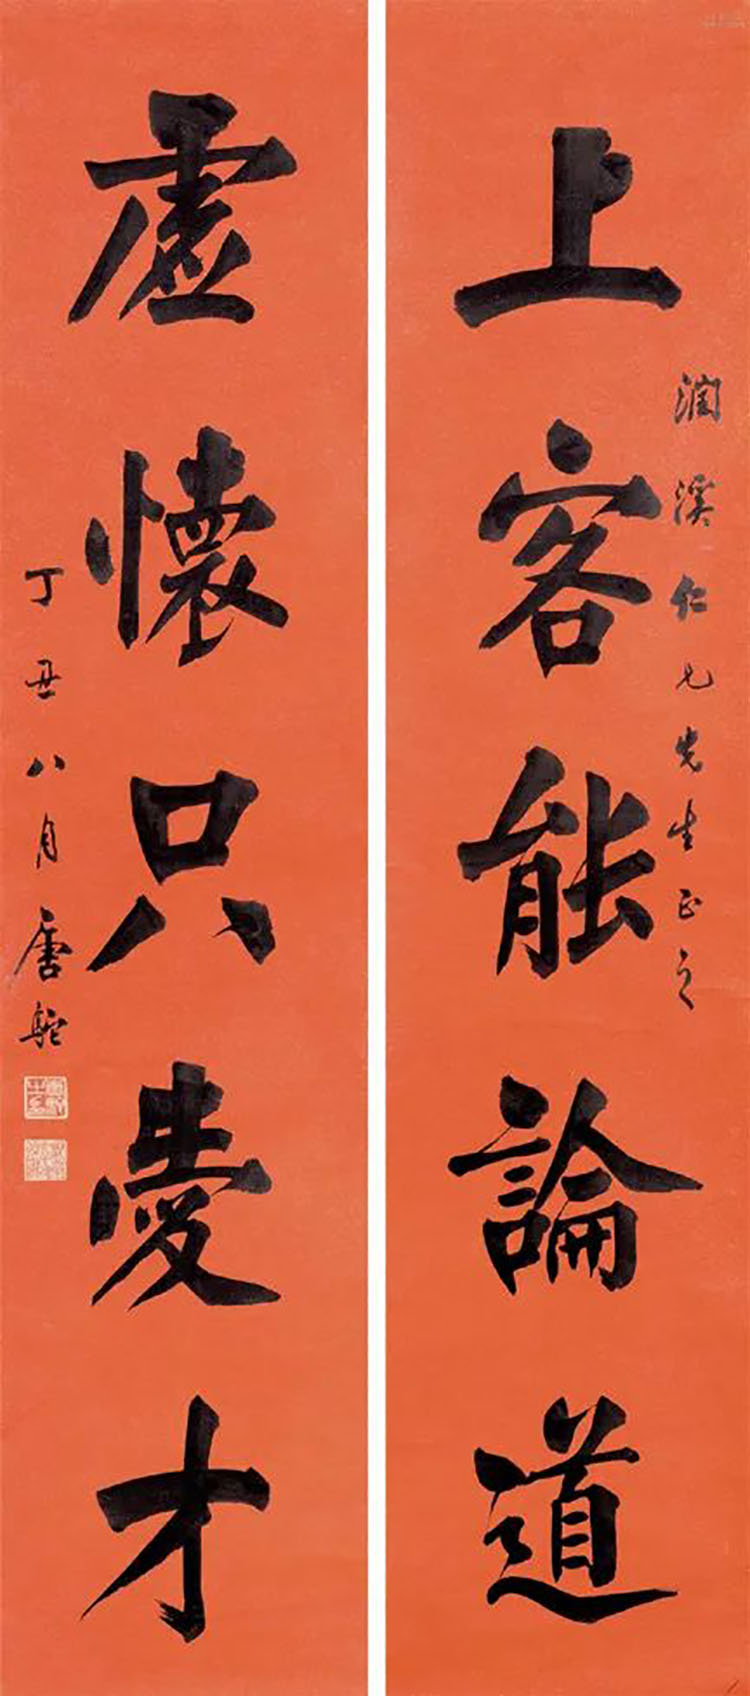 上客能論道
潤溪仁兄先生正之
虛懷只愛才
丁丑八月唐駝